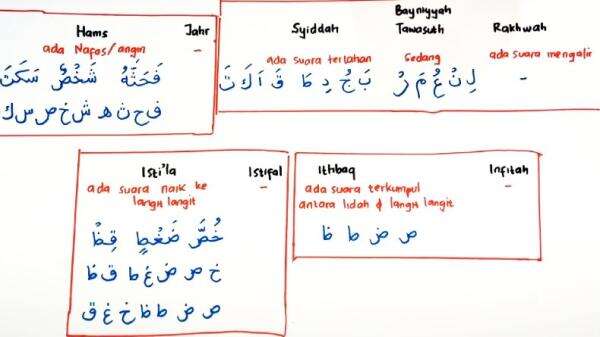 Hams
Jahr
ada Nafas/angin
-
فَحَثَّهُ شَخْصٌ سَكَتَ
ف ح ث ه ش خ ص س ك
Syiddah
Bayniyyah
Tawasuth
Rakhwah
ada suara tertahan
Sedang
ada suara mengalir
بَ جُ دِ طَ قَ اَ كَ تَ
لِ نْ عُ مَ رْ
-
Isti'la
Istifal
ada suara naik ke
langit langit
-
خُصَّ ضَغْطٍ قِظْ
خ ص ض غ ط ق ظ
ص ض ط ظ خ غ ق
Ithbaq
Infitah
ada suara terkumpul
antara lidah & langit langit
-
ص ض ط ظ